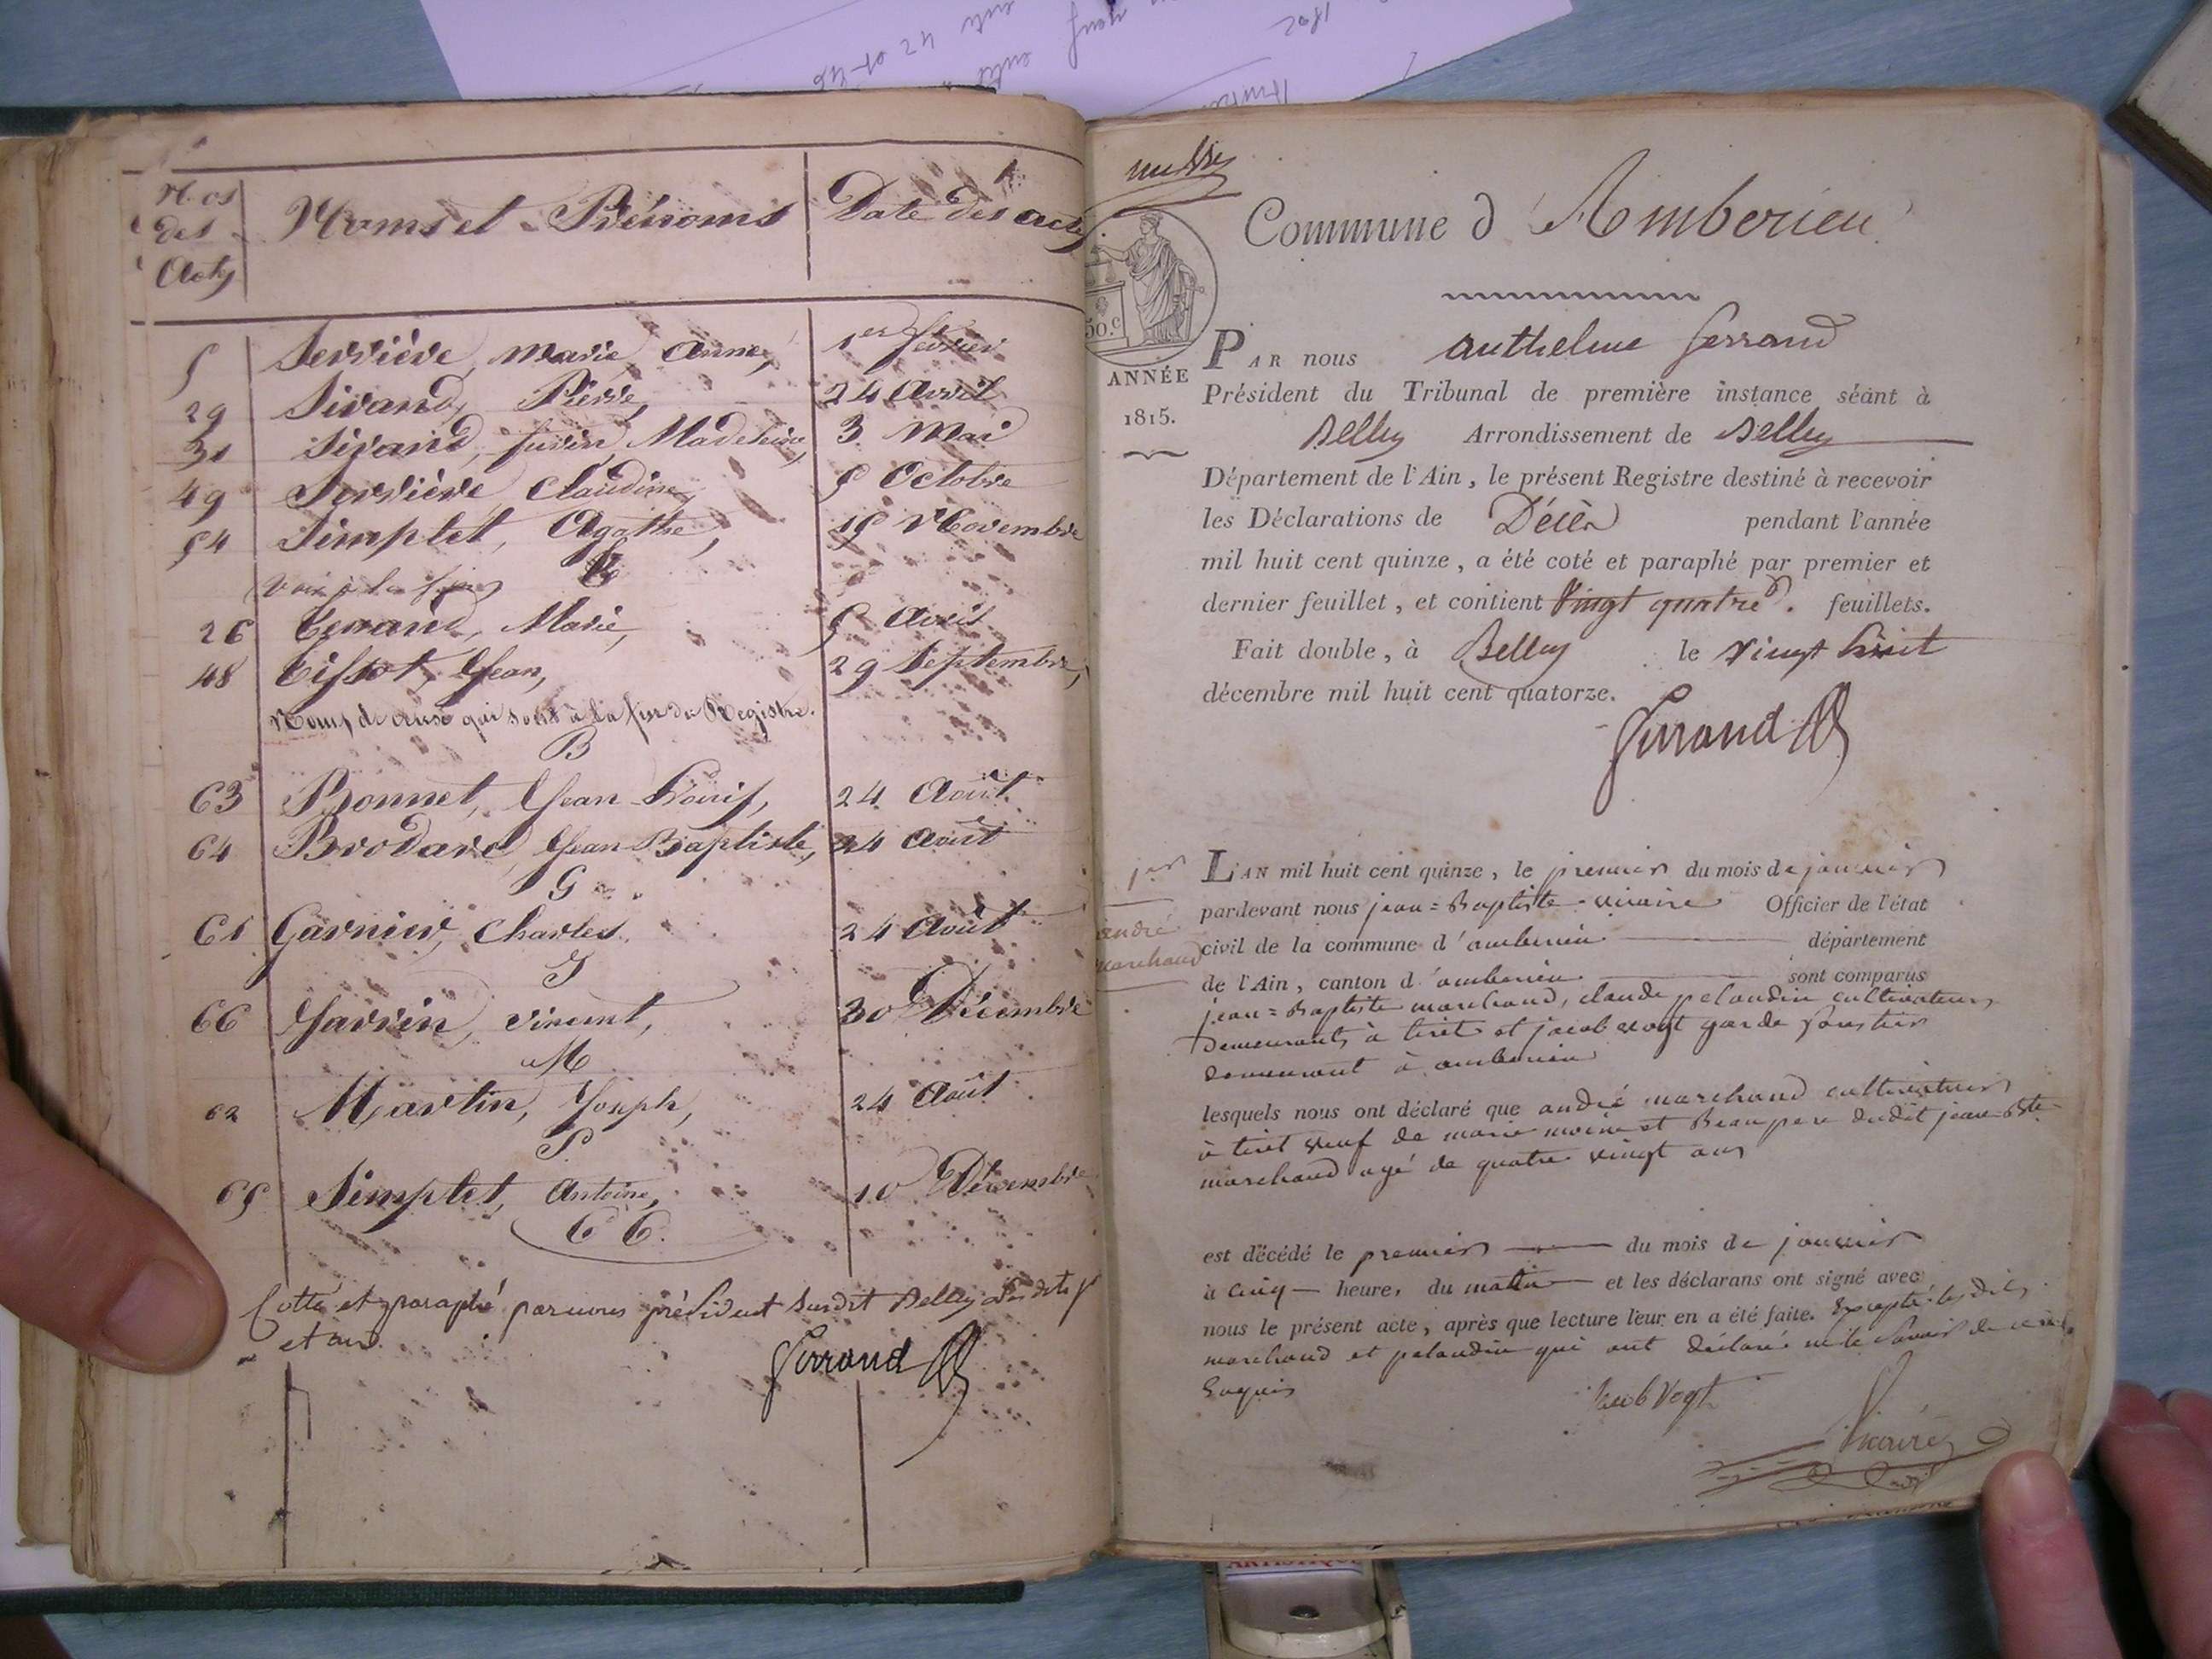 N.os
des
Actes
Noms et Prénoms
Date des actes
5 Serrière, Marie Anne, 1er février
29 Sirand, Pierre, 24 Avril
31 Sirand, Madeleine, 3 Mai
49 Serrière Claudine, 5 Octobre
54 Simplet, Agathe, 15 Novembre
voir à la fin
T
26 Tenand, Marie, 5 Avril
48 Tissot, Jean, 29 Septembre,
Noms de ceux qui sont à la fin du Registre.
B
63 Bonnet, Jean Louis, 24 Août
64 Brodard Jean Baptiste, 24 Août
G
61 Garnier, Charles, 24 Août
J
66 Jarrin, vincent, 30 Décembre
M
62 Martin, Joseph, 24 Août
S
65 Simplet, Antoine, 10 Décembre
Cotté et paraphé par nous président susdit Belley
et an
Ferrand
Commune d'Amberieu
50.c
ANNÉE
1815.
PAR nous anthelme ferrand
Président du Tribunal de première instance séant à
Belley Arrondissement de Belley
Département de l'Ain, le présent Registre destiné à recevoir
les Déclarations de Décès pendant l'année
mil huit cent quinze, a été coté et paraphé par premier et
dernier feuillet, et contient Vingt quatre feuillets.
Fait double, à Belley le vingt huit
décembre mil huit cent quatorze.
Ferrand
1er
andré
marchand
L'AN mil huit cent quinze, le premier du mois de janvier
pardevant nous jean=Baptiste vicaire Officier de l'état
civil de la commune d'amberieu département
de l'Ain, canton d'amberieu sont comparus
jean=Baptiste marchand, claude pelaudin cultivateurs
demeurants à tiret et jacob vogt garde forestier
demeurant à amberieu
lesquels nous ont déclaré que andré marchand cultivateur
à tiret veuf de marie moine et Beaupere dudit jean Bte
marchand agé de quatre vingt ans
est décédé le premier du mois de janvier
à cinq heure, du matin et les déclarans ont signé avec
nous le présent acte, après que lecture leur en a été faite. Excepté lesdits
marchand et pelaudin qui ont déclaré ne le savoir de ce
Enquis
Jacob Vogt
Vicaire